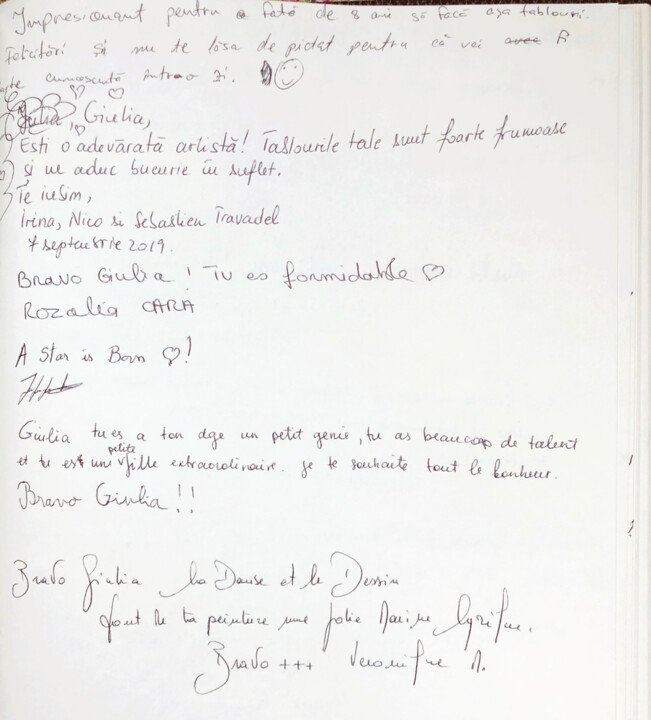 Impresionant pentru o fată de 8 ani să facă așa tablouri.
Felicitări și nu te lăsa de pictat pentru că vei fi
cunoscută într-o zi.
Giulia,
Ești o adevărată artistă! Tablourile tale sunt foarte frumoase
și ne aduc bucurie în suflet.
Te iubim,
Irina, Nico si Sebastien Travadel
7 septembrie 2019.
Bravo Giulia! Tu es formidable ♡
Rozalia CARA
A Star is Born ♡!
Giulia tu es a ton age un petit genie, tu as beaucoup de talent
et tu es une petite fille extraordinaire. je te souhaite tout le bonheur.
Bravo Giulia!!
Bravo Giulia la Danse et le Dessin
font de ta peinture une jolie
Bravo +++ Veronique M.